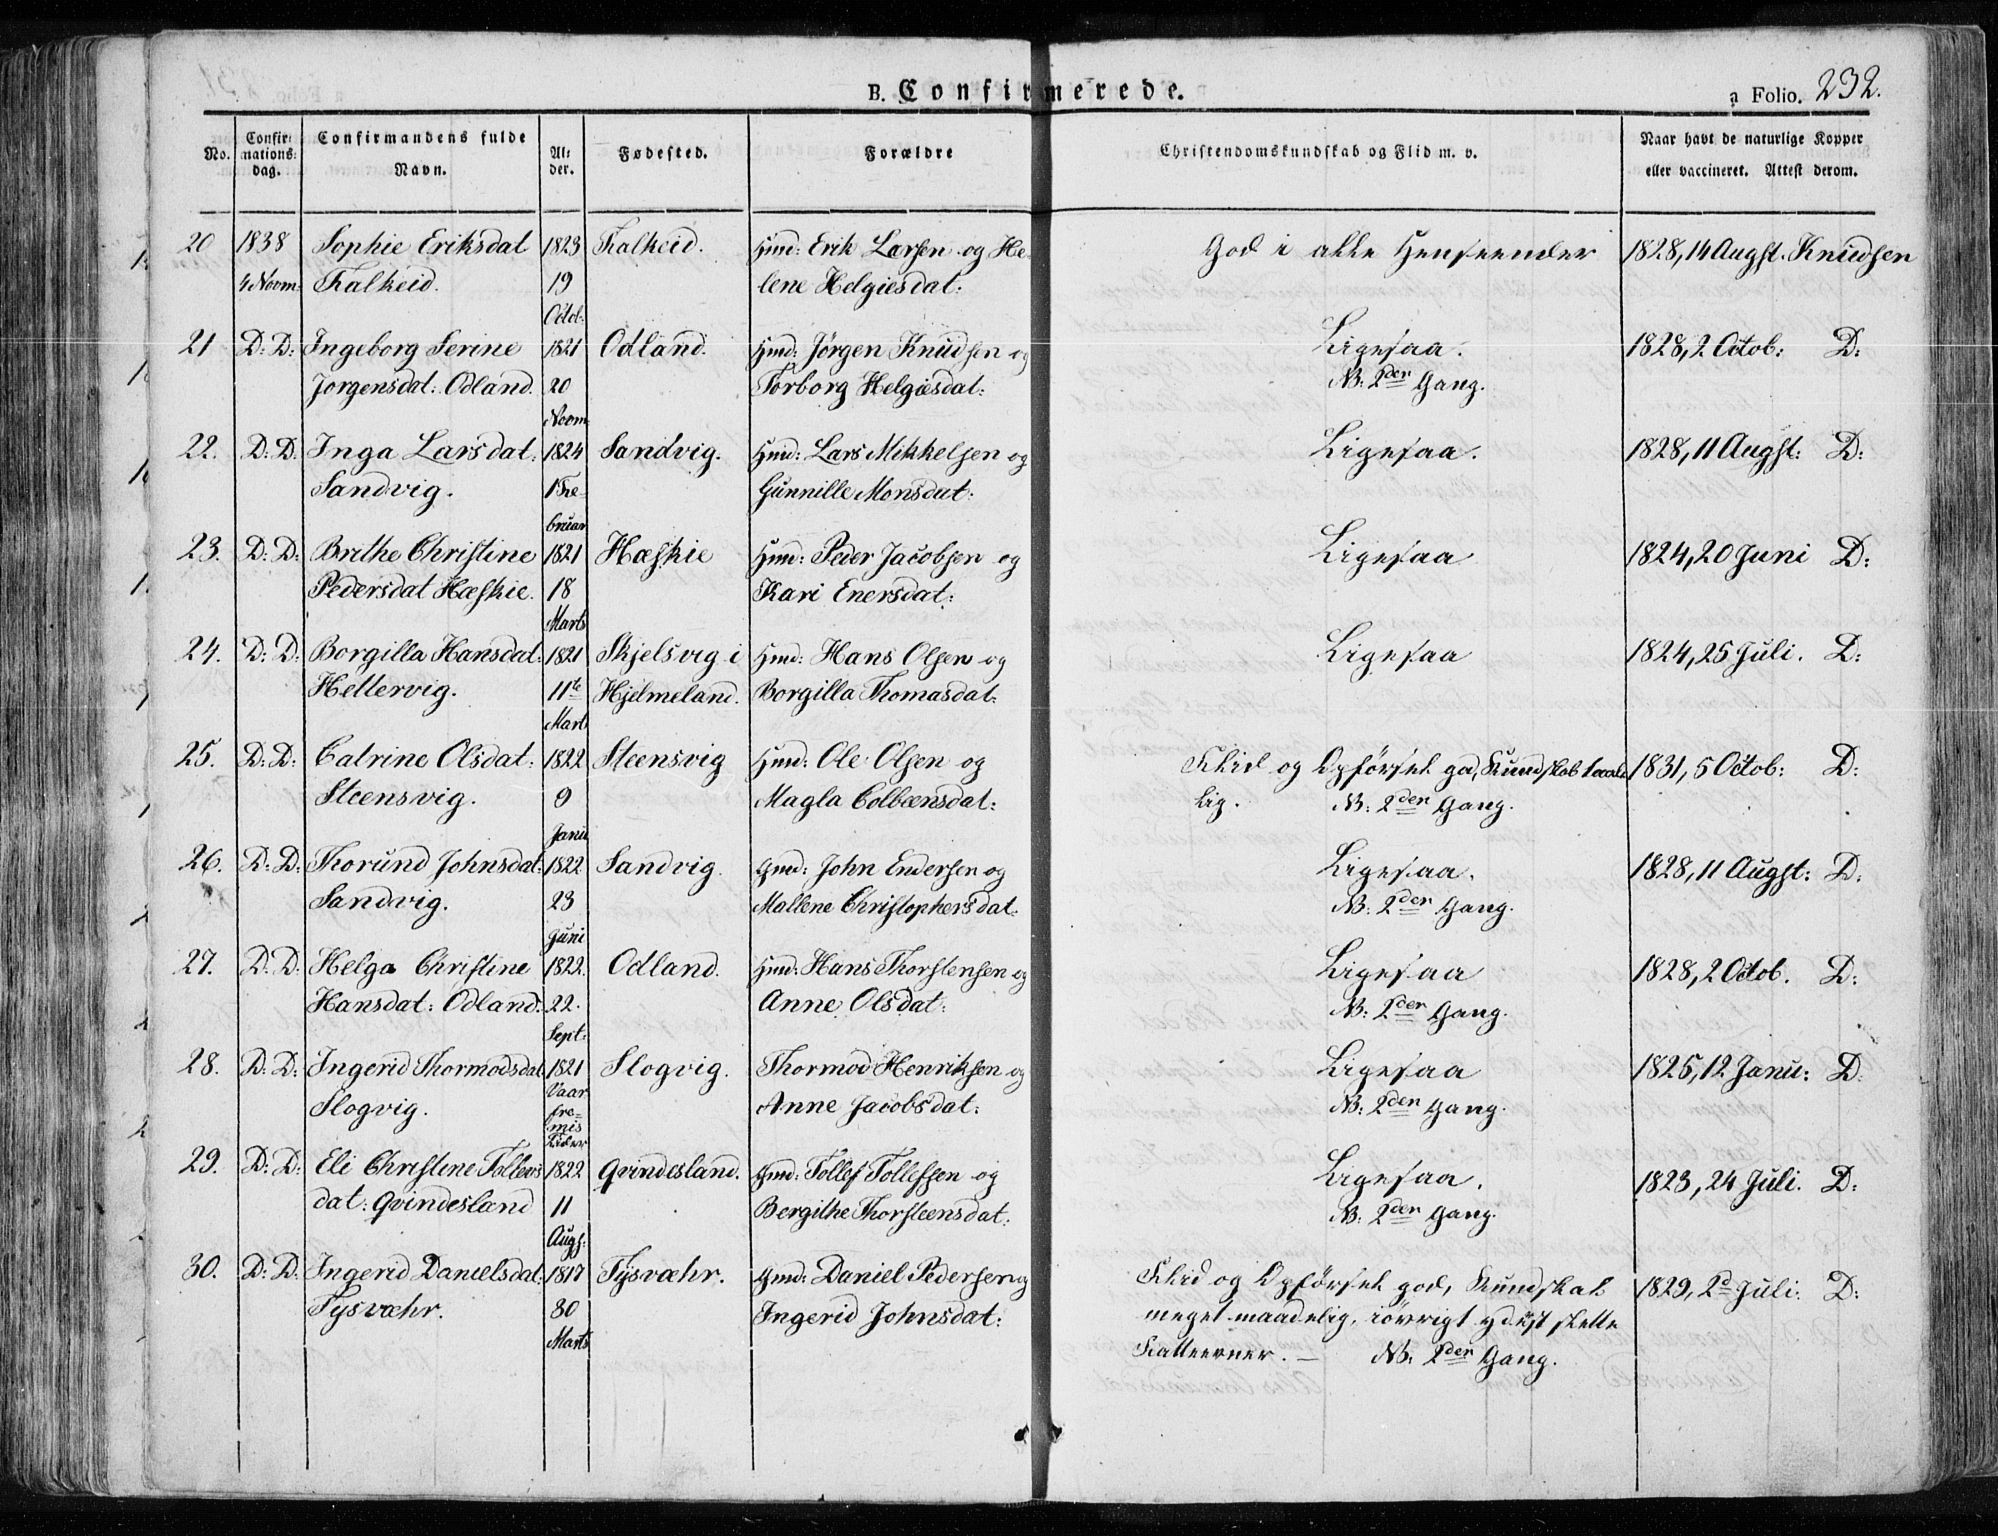 B. Confirmerede.
a Folio. 232.
No.
Confir-
mations-
dag.
Confirmandens fulde
Navn.
Al-
der.
Fødested.
Forældre
Christendomskundskab og Flid m. v.
Naar havt de naturlige Kopper
eller vaccineret. Attest derom.
20 1838 Sophie Eriksdat 1823 Falkeid. Gmd: Erik Larsen og He- God i alle Henseender 1828, 14 Augst. Knudsen
4 Novm: Falkeid. 19 lene Helgiesdat:
Octob.
21 D: D: Ingeborg Serine 1821 Odland. Gmd: Jørgen Knudsen og Ligesaa. 1828, 2 Octob: D:
Jørgensdat: Odland. 20 Torborg Helgiesdat: NB: 2den Gang.
Novm
22. D: D: Inga Larsdat: 1824 Sandvig. Gmd: Lars Mikkelsen og Ligesaa. 1828, 11 Augst: D:
Sandvig. 1 Fe- Gunnille Monsdat:
bruar
23. D: D: Brithe Christine 1821 Hæskie Gmd: Peder Jacobsen og Ligesaa 1824, 20 Juni D:
Pedersdat Hæskie. 18 Kari Enersdat:
Marts
24. D: D: Borgilla Hansdat: 1821 Skjelsvig i Gmd: Hans Olsen og Ligesaa 1824, 25 Juli. D:
Hettervig. 11te Hjelmeland. Borgilla Thomasdat:
Marts
25. D: D: Catrine Olsdat: 1822 Steensvig Gmd: Ole Olsen og Flid og Opførsel god, Kundskab taale 1831, 5 Octob: D:
Steensvig. 9 Magla Colbeensdat: lig. NB: 2den Gang.
Janu
26. D: D: Thorund Johnsdat: 1822 Sandvig. Gmd: John Endersen og Ligesaa. 1828, 11 Augst: D:
Sandvig. 23 Mallene Christophersdat: NB: 2den Gang.
Juni
27. D: D: Helga Christine 1822. Odland. Gmd: Hans Thorstensen og Ligesaa 1828, 2 Octob. D:
Hansdat: Odland. 22. Anne Olsdat: NB: 2den Gang.
Sept:
28. D: D: Ingerid Thormodsdat 1821 Slogvig. Thormod Henriksen og Ligesaa 1825, 12 Janu: D:
Slogvig. Vaar Anne Jacobsdat: NB: 2den Gang.
fre-
mis
Tider
29. D: D: Eli Christine Tollevs 1822 Qvindesland. Gmd: Tollef Tollefsen og Ligesaa. 1823, 24 Juli. D:
dat: Qvindesland 11 Bergithe Thorsteensdat: NB: 2den Gang.
Augs:
30. D: D: Ingerid Danielsdat: 1817 Tysvæhr. Gmd: Daniel Pedersen og Flid og Opførsel god, Kundskab 1829, 2d Juli. D:
Tysvæhr. 30 Ingerid Johnsdat: meget maadelig, iøvrigt yderst slette
Marts Fatteevner. — NB: 2den Gang.